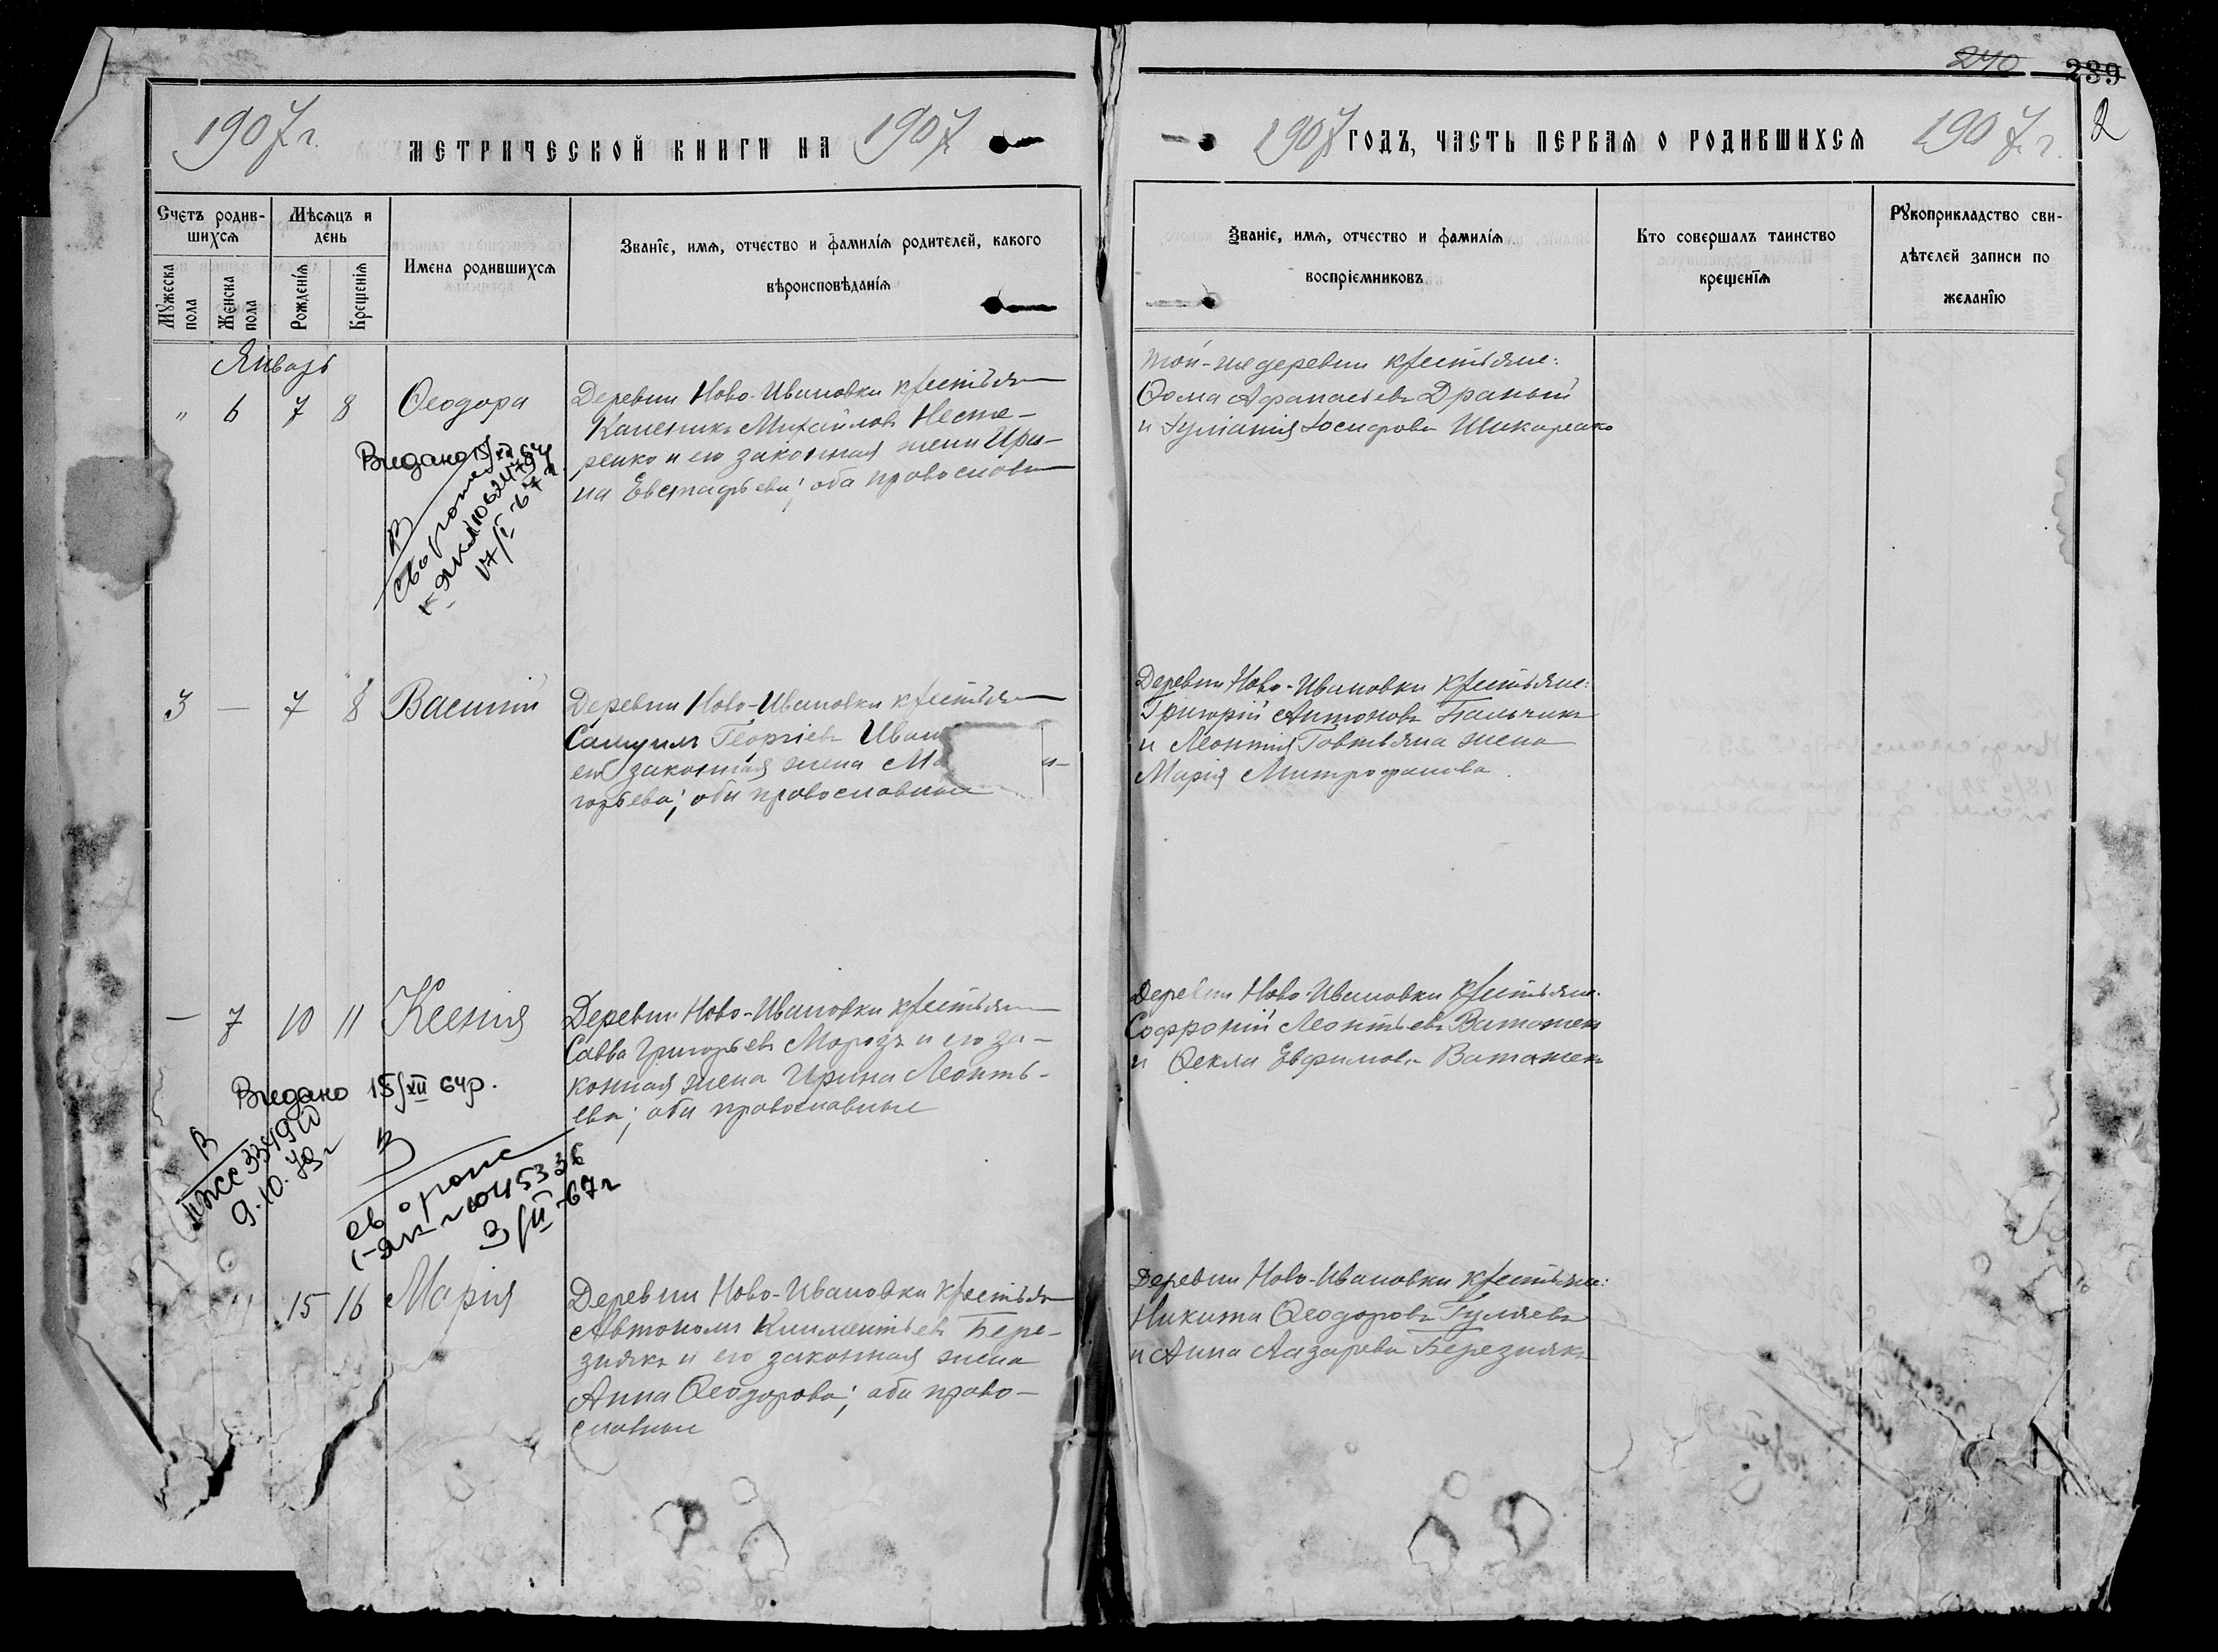 240 239
2
1907 г. МЕТРИЧЕСКОЙ КНИГИ НА 1907
1907 ГОДЪ, ЧАСТЬ ПЕРВАЯ О РОДИВШИХСЯ 1907 г.
Счетъ родив-
шихся
Мужеска пола
Женска пола
Мѣсяцъ и
день
Рожденія
Крещенія
Имена родившихся
Званіе, имя, отчество и фамилія родителей, какого
вѣроисповѣданія
Званіе, имя, отчество и фамилія
воспріемниковъ
Кто совершалъ таинство
крещенія
Рукоприкладство сви-
дѣтелей записи по
желанію
Январь
" 6 7 8 Ѳеодора
Деревни Ново-Ивановки крестьян
Михайловъ Несте-
ренко и его законная жена Ири-
на Евстафьева; оба православн
той-же деревни крестьяне:
Ѳома Афанасьевъ Драный
и Іосифова
Видано 15/XII 64р
17/I-67 г.
3 — 7 8 Василій
Деревни Ново-Ивановки крестьян
Самуилъ Георгіевъ Иван
его законная жена Ма
горьева; оба православные
Деревни Ново-Ивановки крестьяне:
Григорій Антоновъ Пальчикъ
и Леонтія Говтьяна жена
Марія Митрофанова.
— 7 10 11 Ксенія
Деревни Ново-Ивановки крестьян
Савва Григорьевъ Морозъ и его за-
конная жена Ирина Леонть-
ева; оба православные
Деревни Ново-Ивановки крестьяне.
Софроній Леонтьевъ Ватажек
и Ѳекла Евфимова Ватажек
Видано 15/XII 64р.
9.10.79 г
3/II-67 г
15 16 Марія
Деревни Ново-Ивановки крестьян
Автономъ Климентьевъ Бере-
знякъ и его законная жена
Анна Ѳеодорова; оба право-
славные
Деревни Ново-Ивановки крестьяне:
Никита Ѳеодоровъ Гуляевъ
и Анна Лазарева Березнякъ